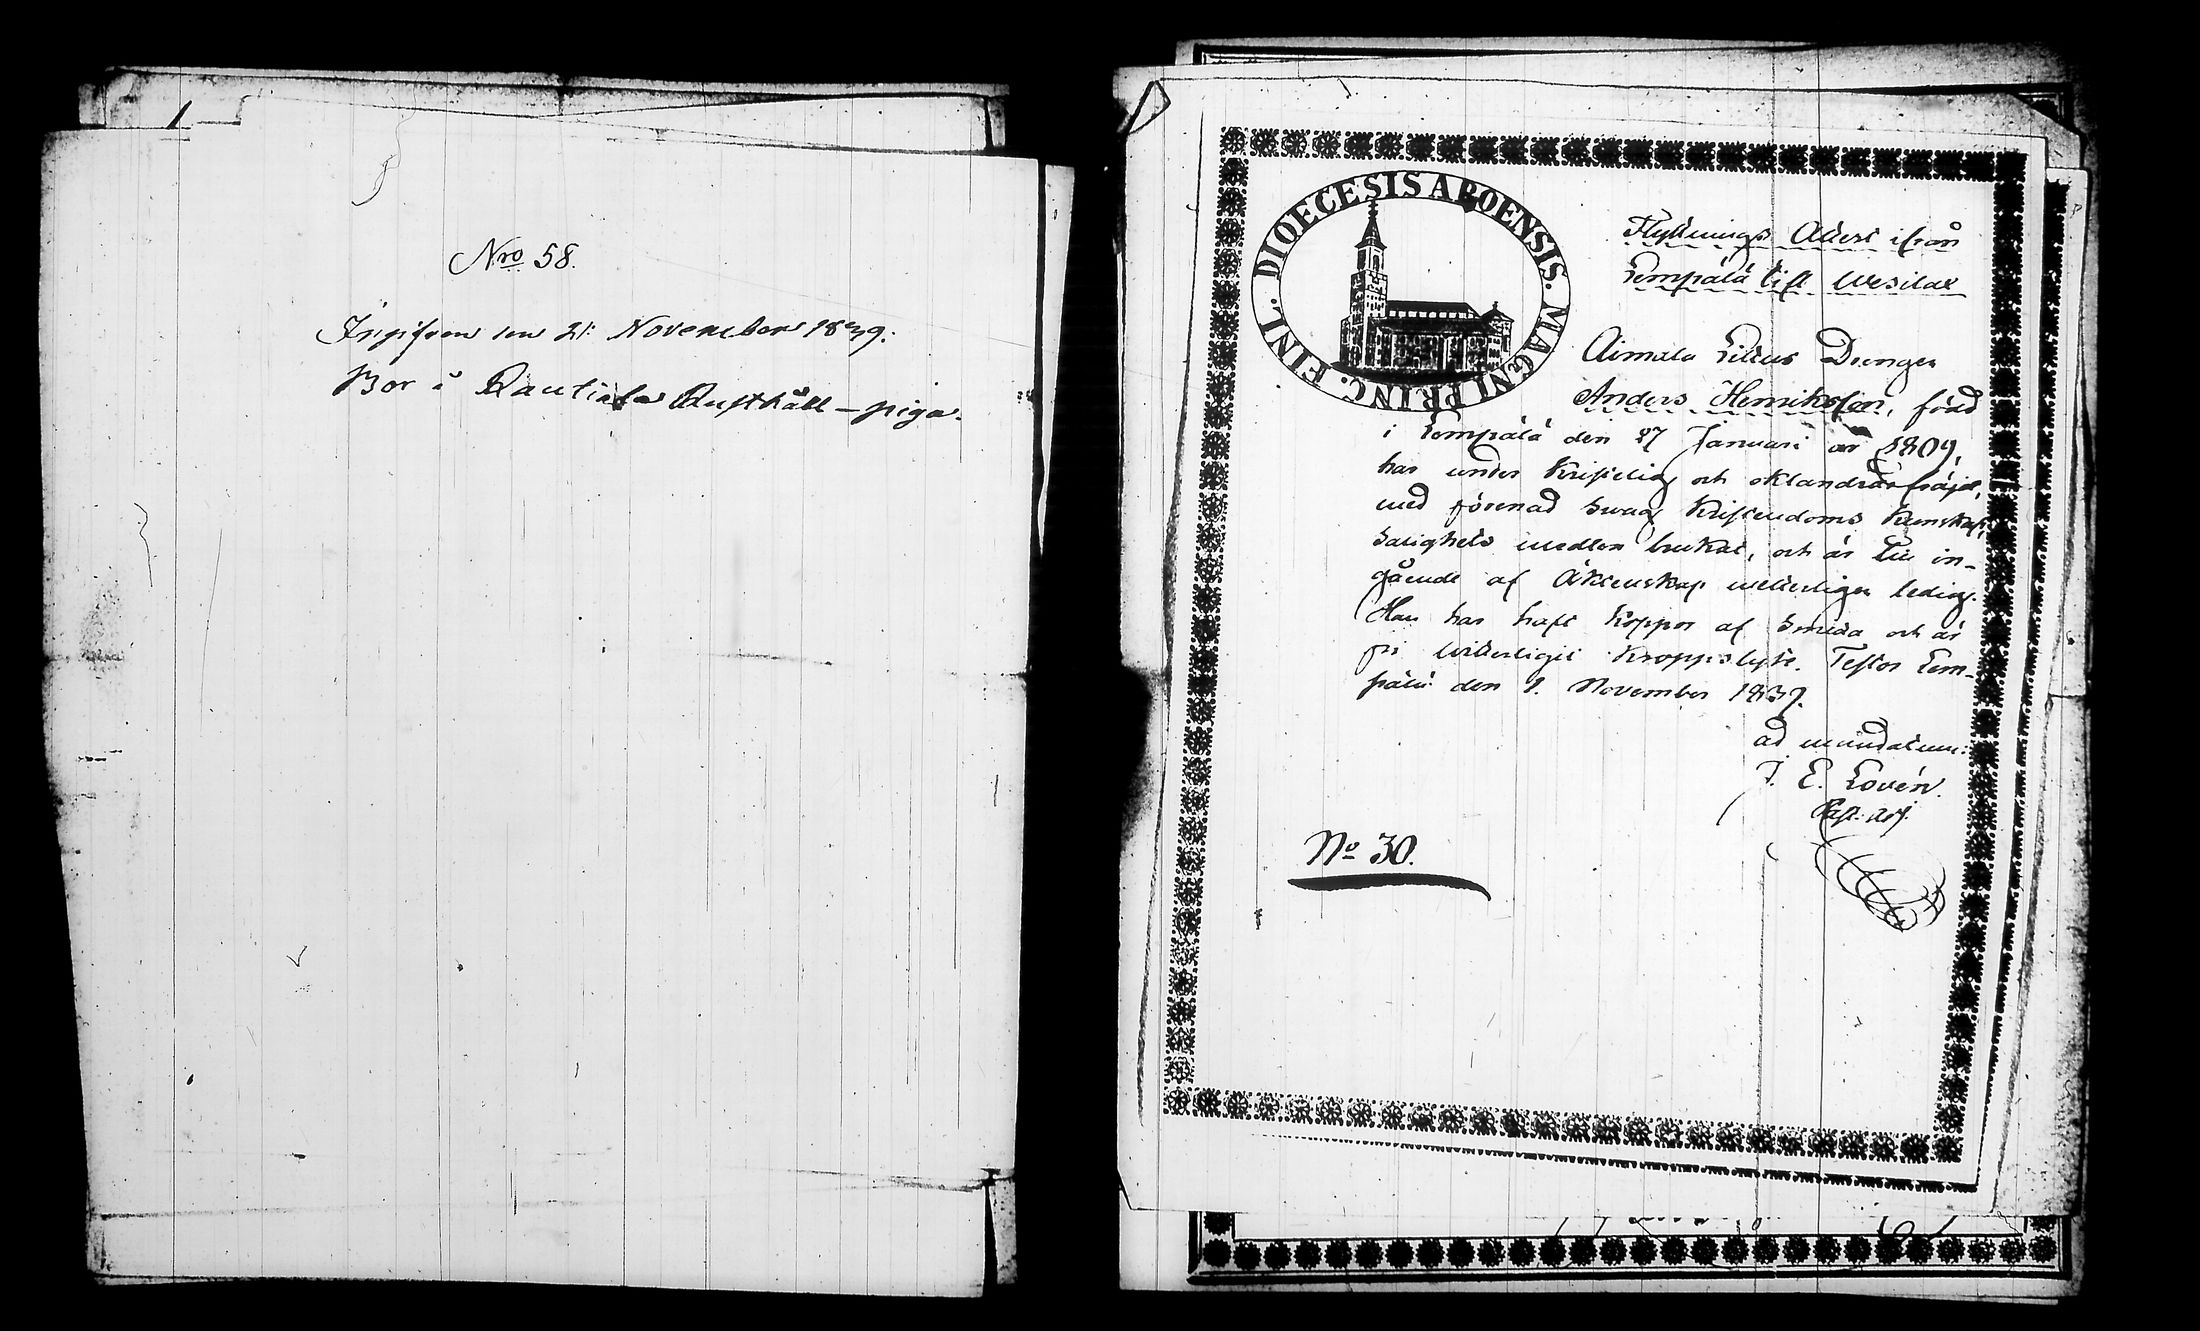 Nro 58.
Ingifven den 21: November 1839.
Bor i Rautiala Rusthåll – piga.
DIOECESIS ABOENSIS. MAGNI PRINC. FINL.
Flyttnings Attest ifrån
Lempälä till Wesilax
Aimala Lilius Drängen
Anders Henriksson, född
i Lempälä den 27 Januari år 1809,
har under Kristelig och oklandrad fräjd,
med förenad svag Kristendoms Kunskap,
Salighets medlen brukat, och är till in-
gående af Äktenskap vetterligen ledig.
Han har haft Koppor af Smitta och är
fri vitterligit Kroppslyte. Testor Lem-
pälä den 1. November 1839.
ad mandatum:
J. E. Lovén.
Past. Adj.
No 30.